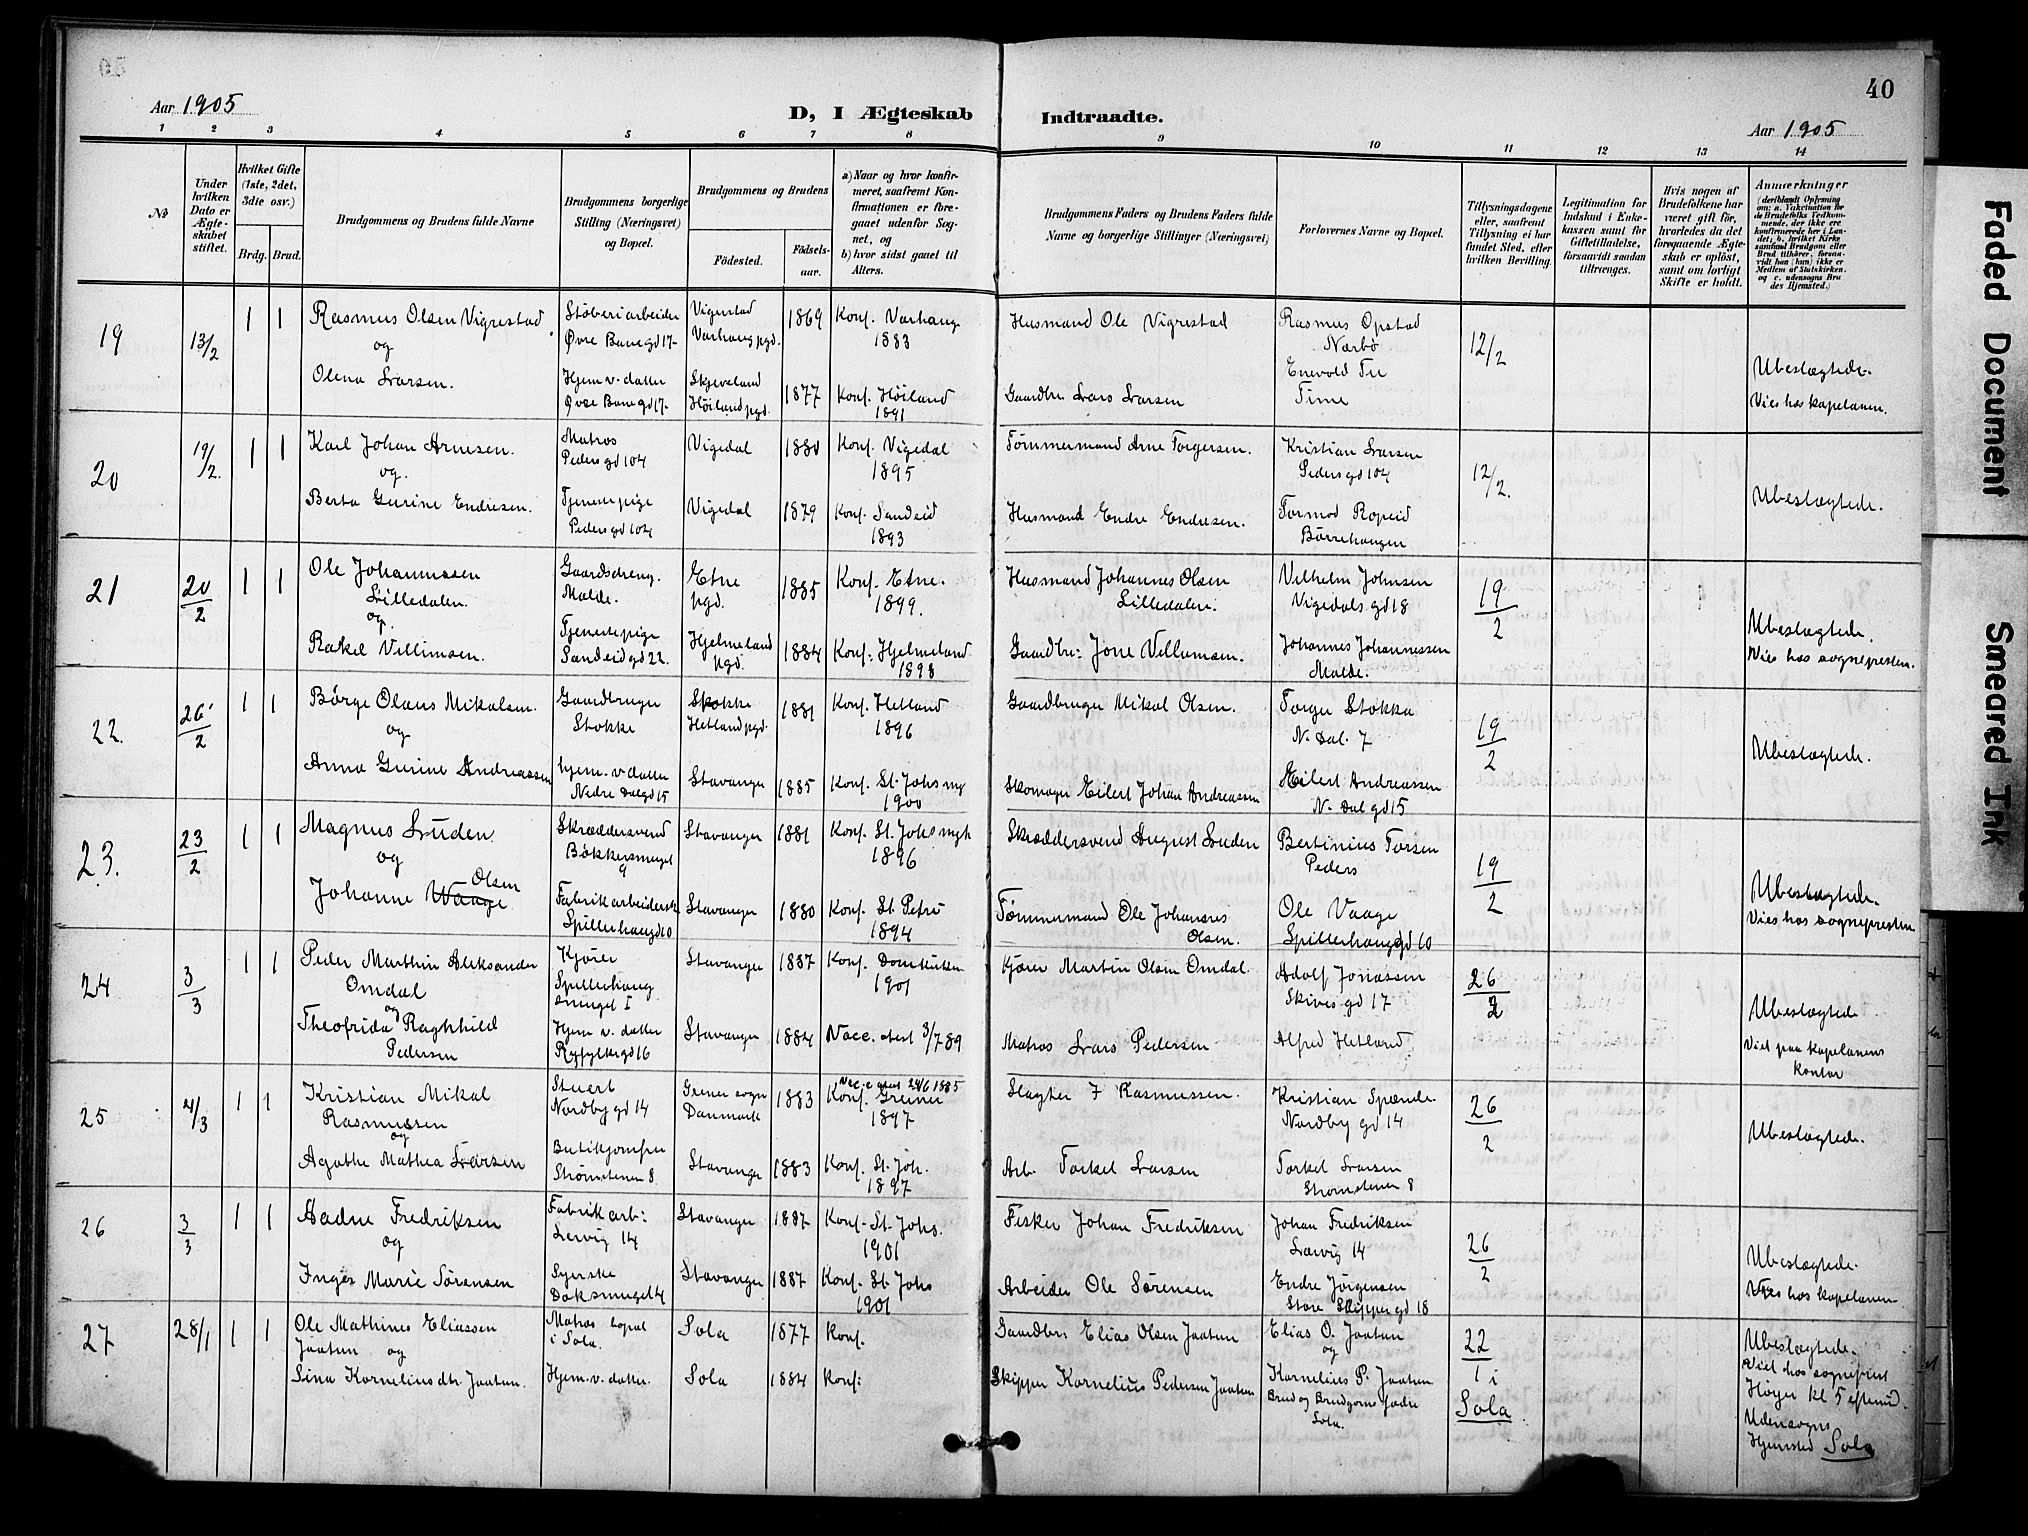 40
Aar 1905
D, I Ægteskab Indtraadte.
Aar 1905
1 2 3 4 5 6 7 8 9 10 11 12 13 14
№
Under hvilken Dato er Ægteskabet stiftet.
Hvilket Gifte (1ste, 2det, 3die osv.)
Brdg. Brud.
Brudgommens og Brudens fulde Navne
Brudgommens borgerlige Stilling (Næringsvei) og Bopæl.
Brudgommens og Brudens
Fødested.
Fødselsaar.
a) Naar og hvor konfirmeret, saafremt Konfirmationen er foregaaet udenfor Sognet, og
b) hvor sidst gaaet til Alters.
Brudgommens Faders og Brudens Faders fulde Navne og borgerlige Stillinger (Næringsvei)
Forlovernes Navne og Bopæl.
Tillysningsdagene eller, saafremt Tillysning ei har fundet Sted, efter hvilken Bevilling.
Legitimation for Indskud i Enkekassen samt for Giftetilladelse, forsaavidt saadan tiltrænges.
Hvis nogen af Brudefolkene har været gift før, hvorledes da det foregaaende Ægteskab er opløst, samt om lovligt Skifte er holdt.
Anmerkninger
19 13/2 1 1 Rasmus Olsen Vigrestad Støberiarbeider Vigrestad 1869 Konf. Varhaug Husmand Ole Vigrestad Rasmus Opstad 12/2 Ubeslægtede.
og Øvre Banegd 17- Varhaug pgd. 1883 Nærbø
Olena Larsen. Hjem v. datter Skjeveland 1877 Konf. Høiland Gaardbr. Lars Larsen Enevold Tu Vies hos kapelanen.
Øvre Banegd 17- Høiland pgd. 1891 Time
20 19/2. 1 1 Karl Johan Arnesen. Matros Vigedal 1880 Konf. Vigedal Tømmermand Arne Torgersen. Kristian Larsen 12/2. Ubeslægtede.
og. Pedersgd 104 1895 Pedersgd 104
Berta Gurine Endresen. Tjenestepige Vigedal 1879 Konf. Sandeid Husmand Endre Endresen. Tormod Ropeid
Pedersgd 104 1893 Børrehaugen
21 20/2 1 1 Ole Johannessen Gaardsdreng. Etne 1885 Konf. Etne. Husmand Johannes Olsen Vilhelm Johnsen 19/2 Ubeslægtede.
Lilledalen. Malde. pgd. 1899. Lilledalen. Vigedalsgd 18
og.
Rakel Villimsen. Tjenestepige Hjelmeland 1884 Konf. Hjelmeland Gaardbr. Jone Villumsen. Johannes Johannessen Vies hos sognepresten.
Sandeidgd 22. pgd. 1898 Malde.
22. 26/2 1 1 Børge Olaus Mikalsen. Gaardbruger Stokke 1881 Konf. Hetland Gaardbruger Mikal Olsen. Torger Stokka 19/2 Ubeslægtede.
og Stokke Hetland pgd. 1896 N. Dal. 7
Anna Gurine Andreassen hjem. v datter Stavanger 1885 Konf. St. Johs mg Skomager Eilert Johan Andreassen Eilert Andreassen
Nedre Dalgd 15 1900 N. Dalgd 15
23. 23/2 1 1 Magnus Luden Skræddersvend Stavanger 1881 Konf. St. Johs mgh Skræddersvend August Luden Bertinius Torsen 19/2 Ubeslægtede.
og Bøkkersmuget 9 1896 Peders
Olsen
Johanne Waage Fabrikarbeiderske Stavanger 1880 Konf. St. Petri Tømmermand Ole Johannes Ole Vaage Vies hos sognepresten
Spilderhaugd 10 1894 Olsen. Spilderhauggd 10
24 3/3 1 1 Peder Marthin Aleksander Kjører Stavanger 1887 Konf. Domkirken Kjører Martin Olsen Omdal. Adolf Jonassen 26/2 Ubeslægtede
Omdal Spilderhaug smuget 1 1901 Skivesgd 17
og
Theofrida Raghhild Hjem v. datter Stavanger 1884 Vacc. atest 3/7 89 Matros Lars Pedersen Alfred Hetland Viet paa kapelanens
Pedersen Ryfylkegd 16 kontor
25 4/3 1 1 Kristian Mikal Stuert Grenaa sogn 1883 Vacc. atest 24/6 1885 Slagter J Rasmussen. Kristian Spande 26/2 Ubeslægtede.
Rasmussen Nordbygd 14 Danmark Konf. 1897 Nordbygd 14
og
Agathe Mathea Larsen Butikjomfru Stavanger 1883 Konf. St. Joh. Arb. Torkel Larsen Torkel Larsen
Strømstenen 8. 1897 Strømstenen 8
26 3/3 1 1 Aadne Fredriksen Fabrikarb: Stavanger 1887 Konf. St. Johs. Fisker Johan Fredriksen Johan Fredriksen 26/2 Ubeslægtede.
og Lervig 14 1901 Lervig 14
Inger Marie Sørensen Syerske Stavanger 1887 Konf. St. Johs Arbeider Ole Sørensen Endre Jørgensen Vies hos kapelanen.
Doksmuget 4 1901 Store Skippergd 18
27 28/1 1 1 Ole Mathines Eliassen Matros bopæl Sola 1877 Konf. Gaardbr. Elias Olsen Jaatun Elias O. Jaatun 22/1 i Ubeslægtede.
Jaatun og i Sola. og Sola Viet hos sogneprest
Sina Korneliusdtr. Jaatun. Hjem. v. datter. Sola 1884 Konf: Skipper Kornelius Pedersen Jaatun Kornelius P. Jaatun Høyer kl 5 efterm.
Brud og Brudgoms fædre Udensogns
Sola. Hjemsted Sola
Faded Document
Smeared Ink